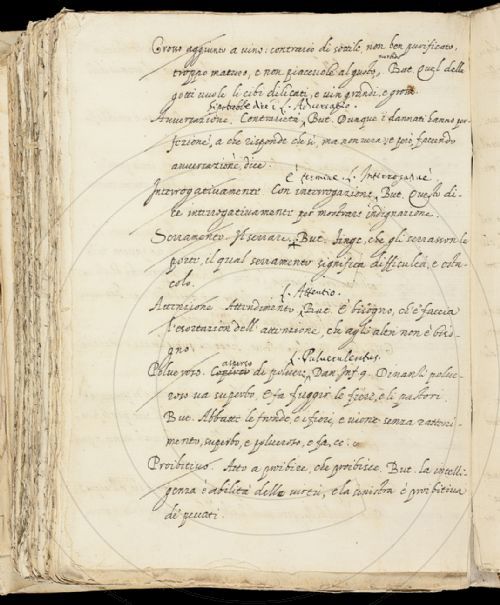 Grosso aggiunto a vino: contrario di sottile, non ben purificato,
troppo maturo, e non piacevole al gusto, But. Quel delle
gotti vuole li cibi dilicati, e vin grandi, e grossi
si potrebbe dire L. Adversatio.
Avversazione. Contrarietà, But. Dunque i dannati hanno per
fezione, a che risponde che sì, ma non vera, e poi facendo
avversazione, dice:
È termine. L. Interrogativè.
Interrogativamente Con interrogazione, But. Questo di
te interrogativamente per mostrare indignazione.
Serramento. Il serrare, But. Finge, che gli serrasson le
porte, il qual serramento significa difficultà, e osta
colo.
L. Attentio.
Attenzione Attendimento, But. È bisogno, ch'è faccia
l'esortazion dell'attenzione, che agli altri non è biso-
gno.
asperso L. Pulverulentus.
Polveroso. Coperto di polvere, Dan. Inf. 9. Dinanzi polve
roso va superbo, e fa fuggir le fiere, e li pastori.
But. Abbatte le fronde, e i fiori, e viene senza ratteni-
mento, superbo, e polveroso, e fa, ec.
Proibitivo. Atto a proibire, che proibisce. But. la intelli-
genza è abilità delle virtù, e la sinistra è proibitiva
de' peccati.